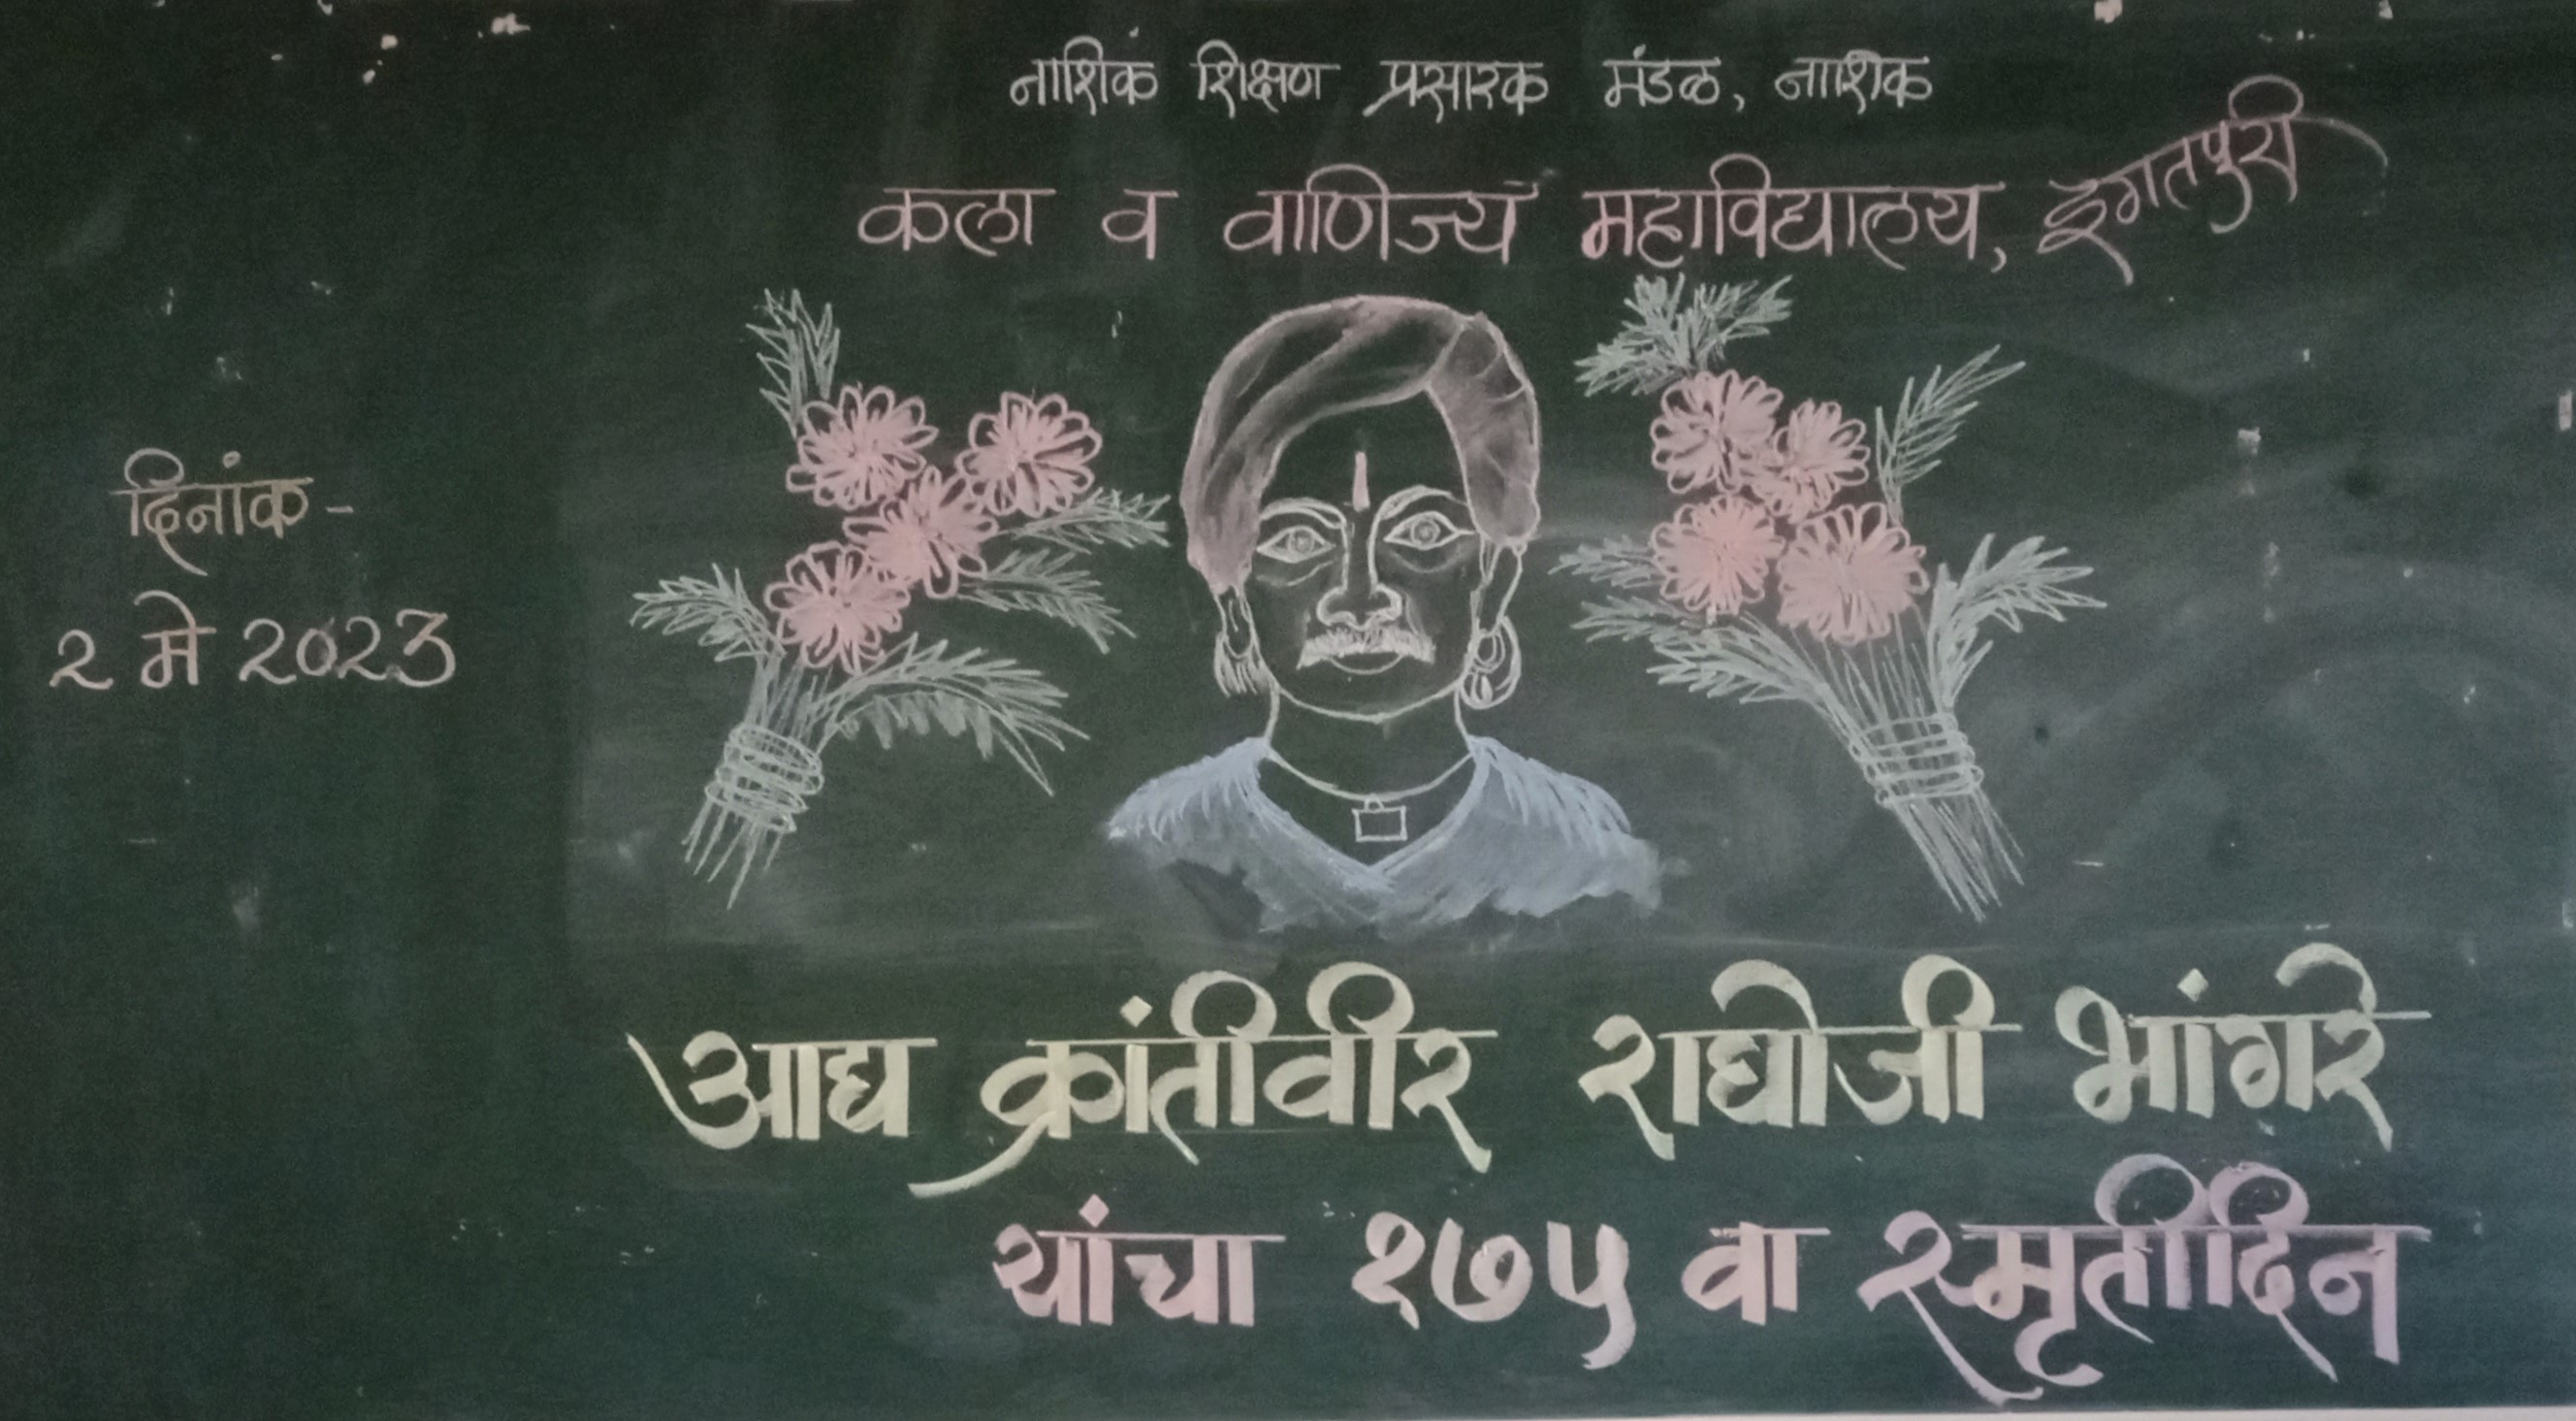 नाशिक शिक्षण प्रसारक मंडळ, नाशिक
कला व वाणिज्य महाविद्यालय, इगतपुरी
दिनांक -
२ मे 2023
आद्य क्रांतीवीर राघोजी भांगरे
यांचा १७५ वा स्मृतीदिन